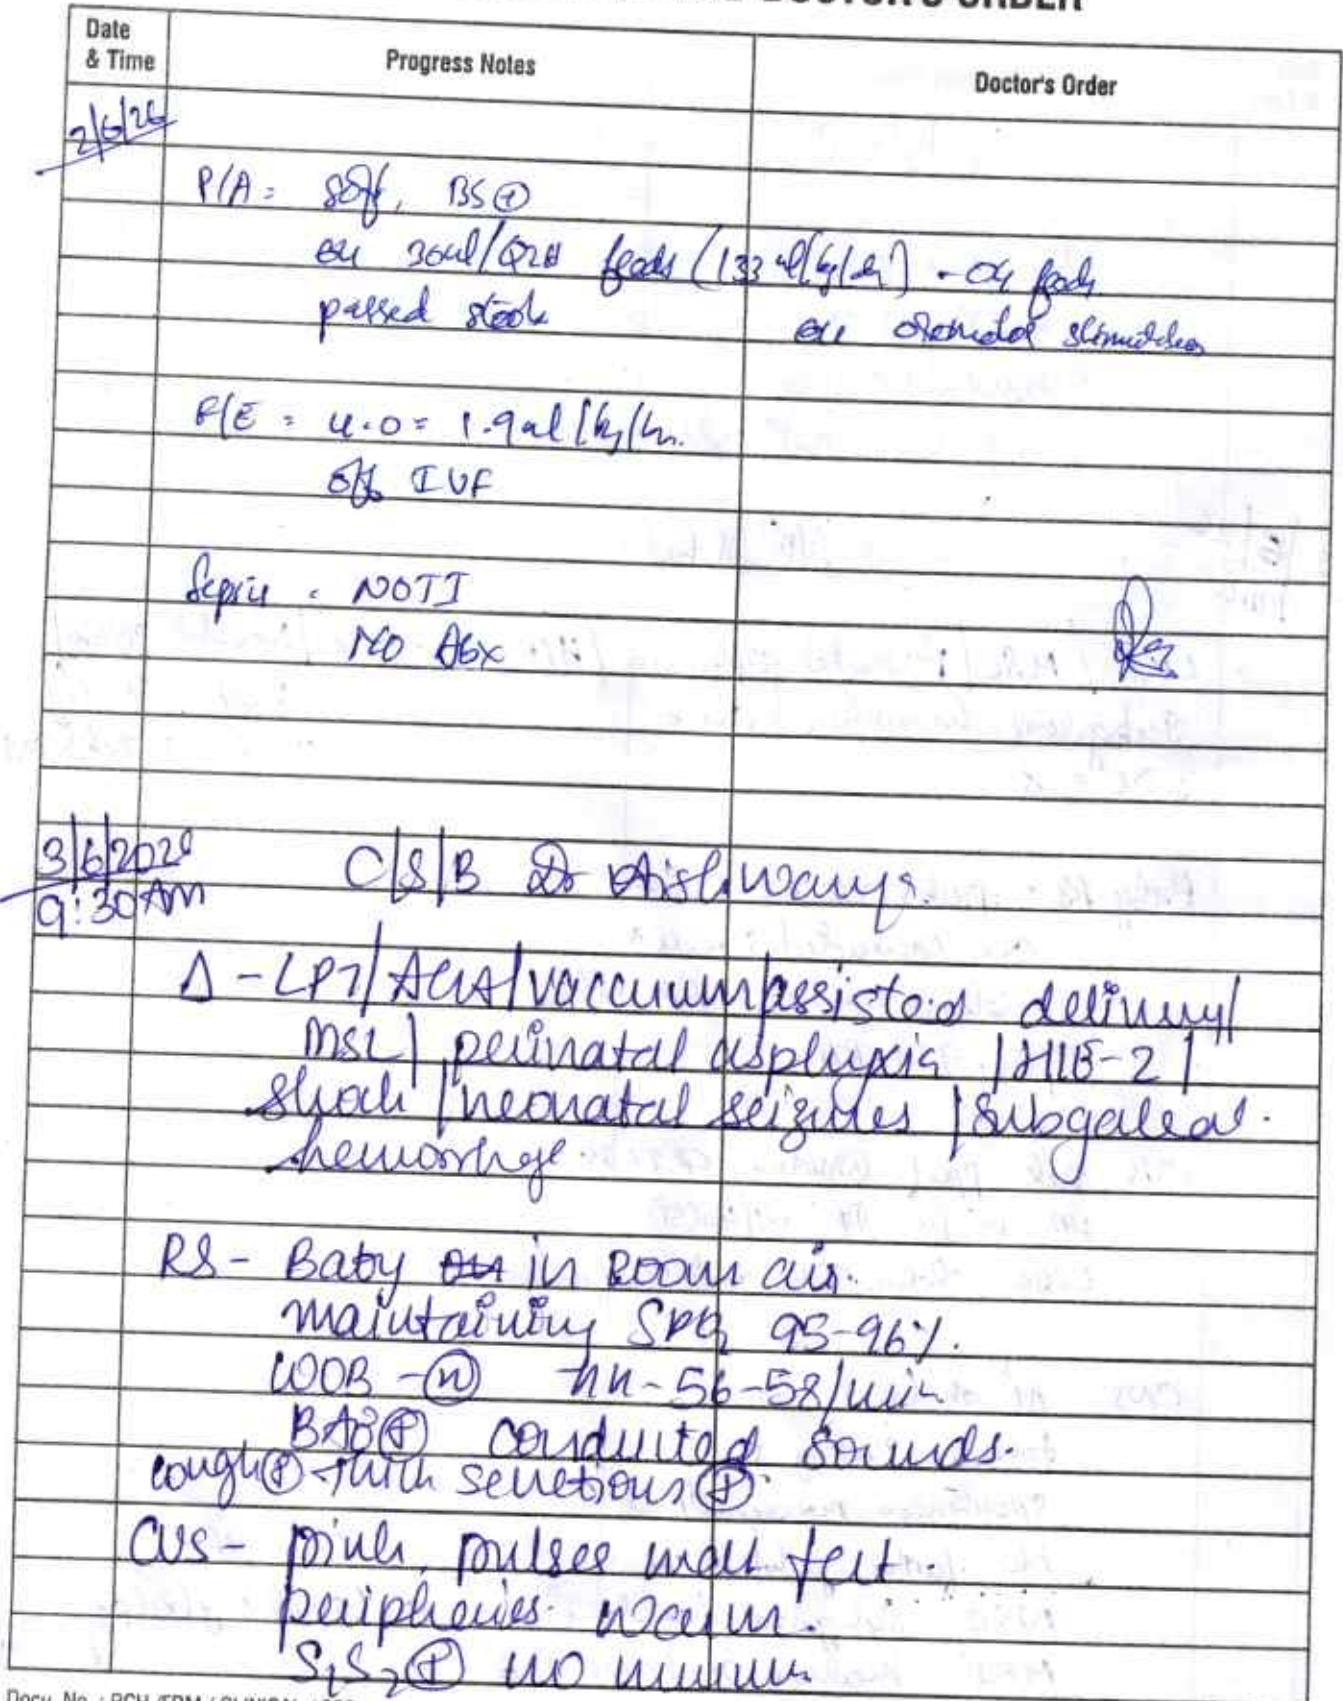 DOCTOR'S ORDER
Date & Time
Progress Notes
Doctor's Order
2/6/26
P/A = soft, BS ⊕
on 30ml/Q2H feeds (133 ml/kg/day) - OG feeds
passed stools
on oromotor stimulation
F/E = U.O = 1.9 ml/kg/hr.
off IVF
Sepsis - NOTI
NO Abx
3/6/2026
9:30AM
C/S/B Dr Aishwarya.
Δ - LPT/AGA/vaccuum/assisted delivery/
MSL/ perinatal asphyxia /HIE-2/
shock /neonatal seizures /Subgaleal.
hemorrhge.
RS - Baby in Room air.
maintaining SPO2 95-96%.
WOB - (N) RR-56-58/min
BAE ⊕ conducted sounds.
cough ⊕ Thick secretions ⊕.
CVS - pink, pulses well felt.
peripheries warm.
S1S2 ⊕ no murmur
Docu. No. :